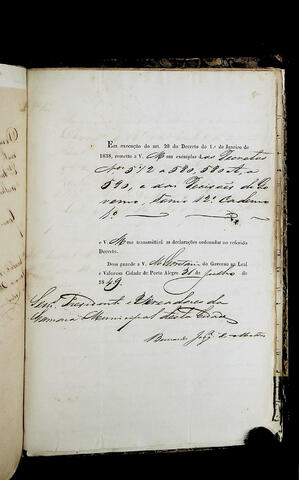 Em execução do art. 20 do Decreto do 1.º de Janeiro de
1838, remetto a V. M um exemplar das Decretos
Nºs 572 a 580, 580 A, a
590, e das Decisões do Go-
verno, Tomo 12º Caderno
e V. M me transmittirá as declarações ordenadas no referido
Decreto.
Deos guarde a V. M do Governo na Leal
e Valorosa Cidade de Porto Alegre 31 de Julho de
1849.
Snrs. Presidente e Vereadores da
Camara Municipal desta Cidade
Bernardo